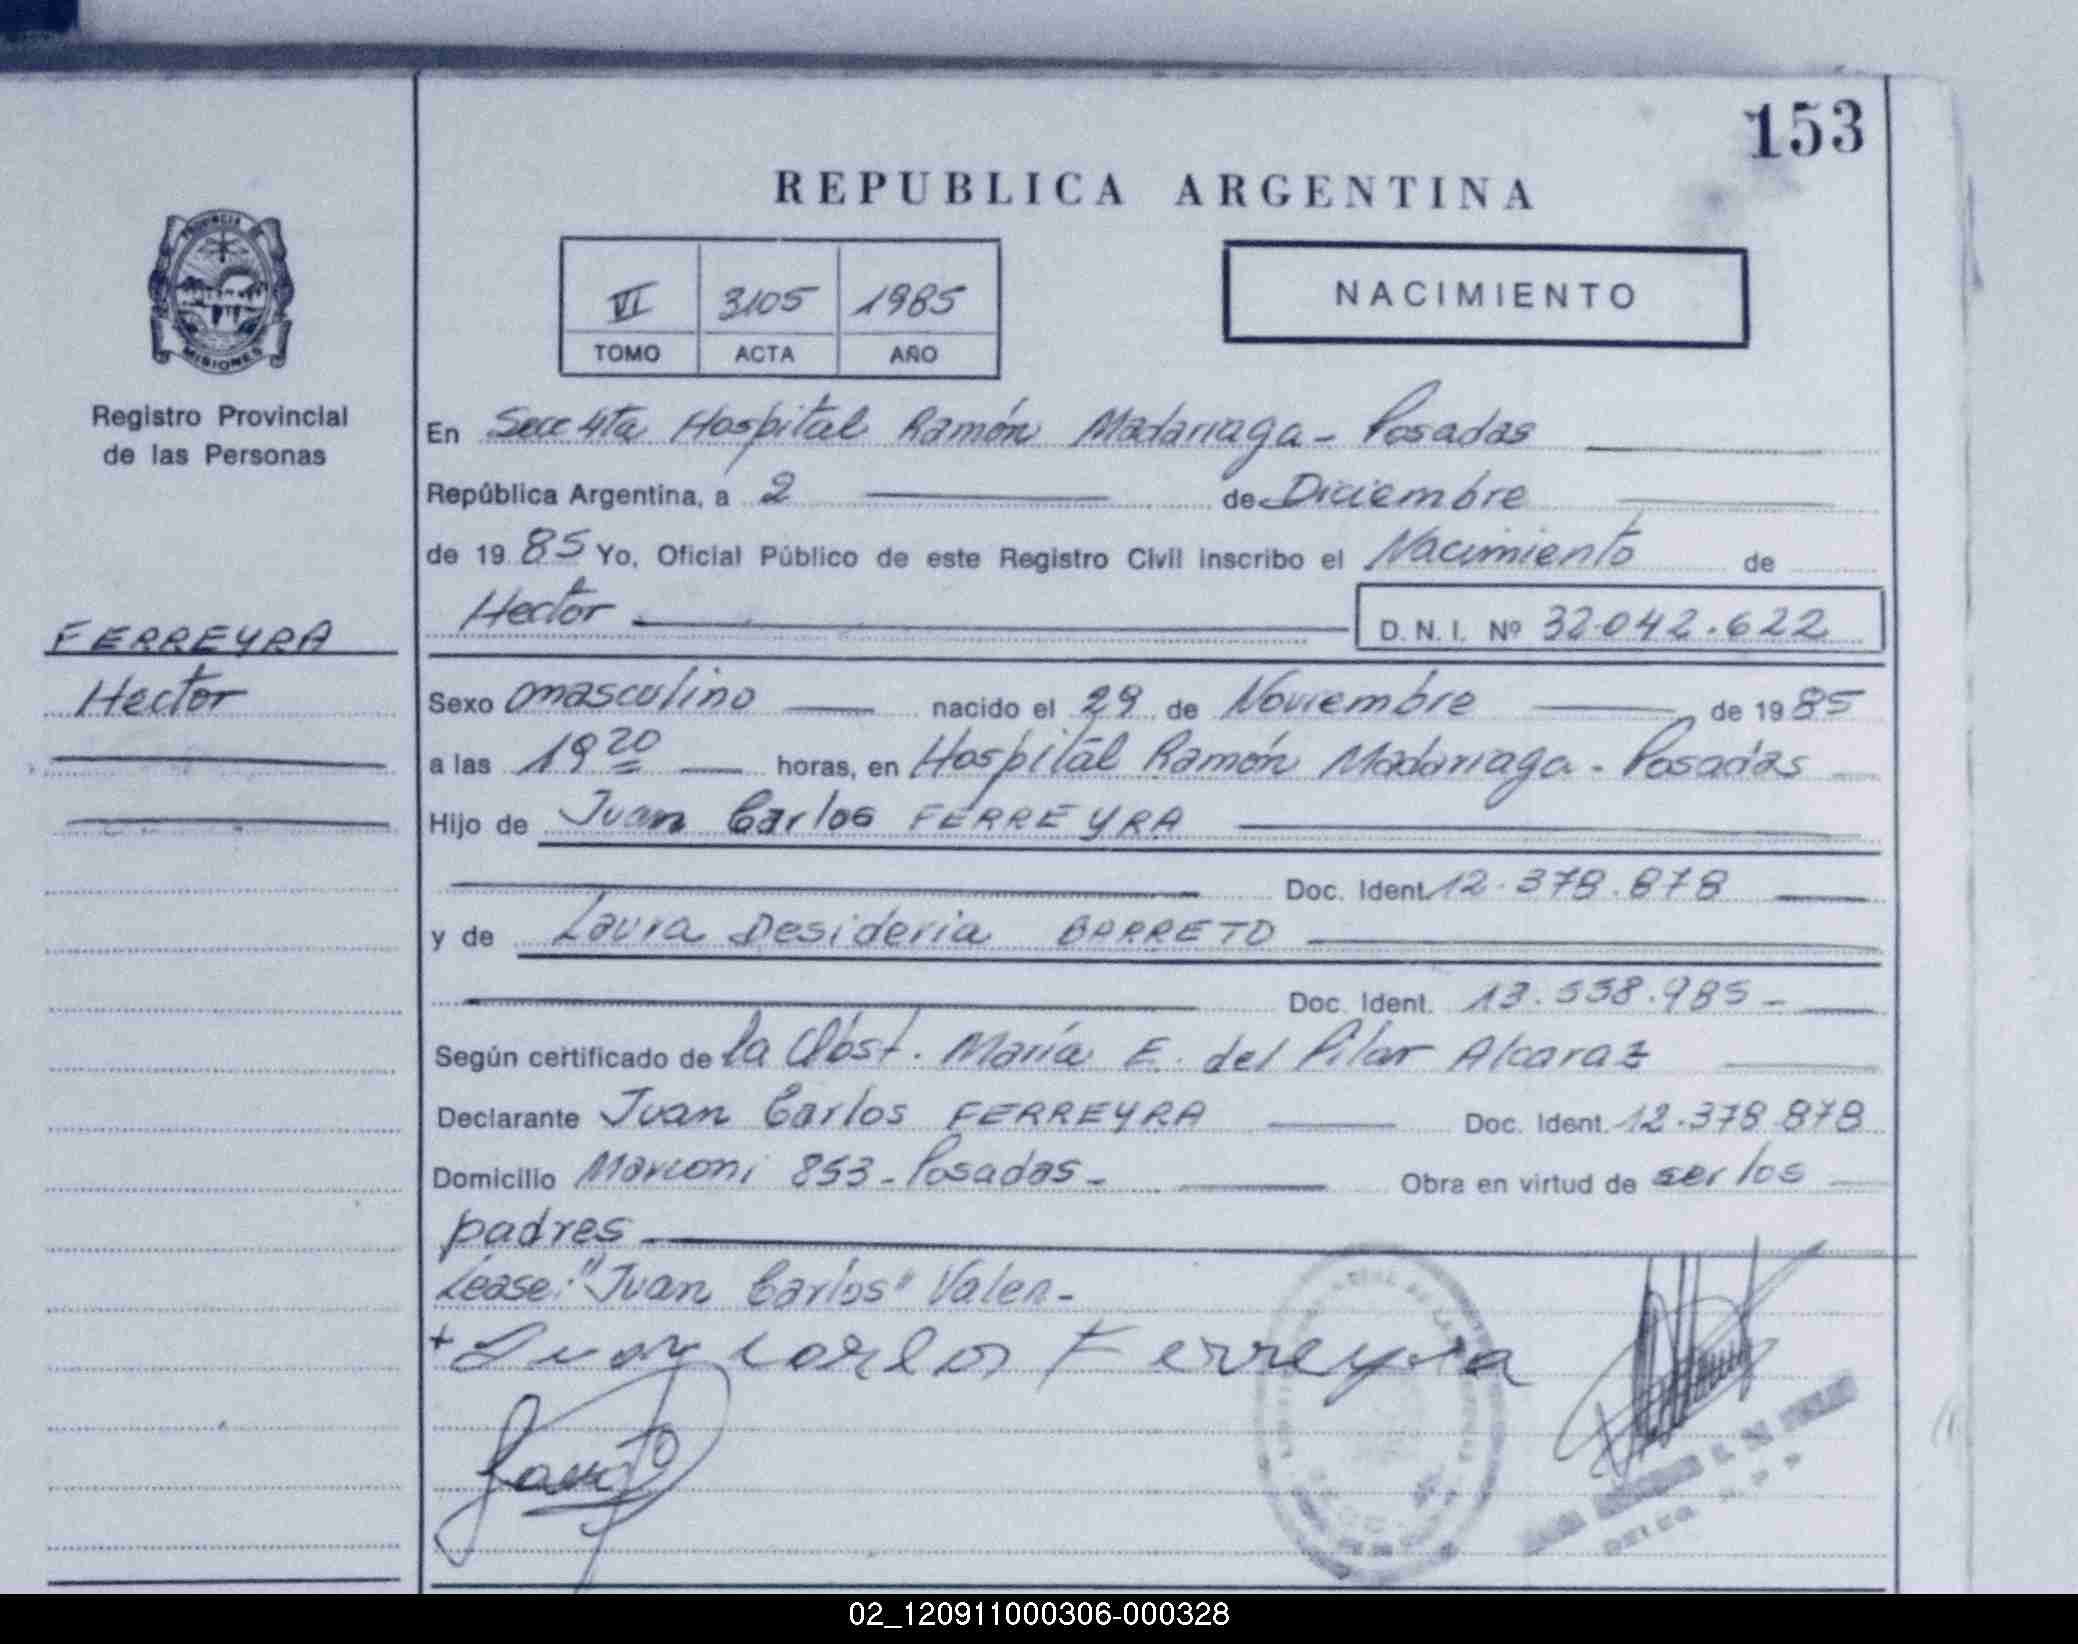 153
REPUBLICA ARGENTINA
PROVINCIA DE
MISIONES
Registro Provincial
de las Personas
VI 3105 1985
TOMO ACTA AÑO
NACIMIENTO
En Secc 4ta Hospital Ramón Madariaga - Posadas
República Argentina, a 2 de Diciembre
de 19 85 Yo, Oficial Público de este Registro Civil inscribo el Nacimiento de
Hector D. N. I. Nº 32.042.622
FERREYRA
Hector
Sexo masculino nacido el 29 de Noviembre de 19 85
a las 19 20 horas, en Hospital Ramón Madariaga - Posadas
Hijo de Juan Carlos FERREYRA
Doc. Ident. 12.378.878
y de Laura Desideria BARRETO
Doc. Ident. 13.558.985 -
Según certificado de la Obst. María E. del Pilar Alcaraz
Declarante Juan Carlos FERREYRA Doc. Ident. 12.378.878
Domicilio Marconi 853 - Posadas - Obra en virtud de ser los
padres
Lease: "Juan Carlos" Valen -
+ Juan Carlos Ferreyra
02_120911000306-000328